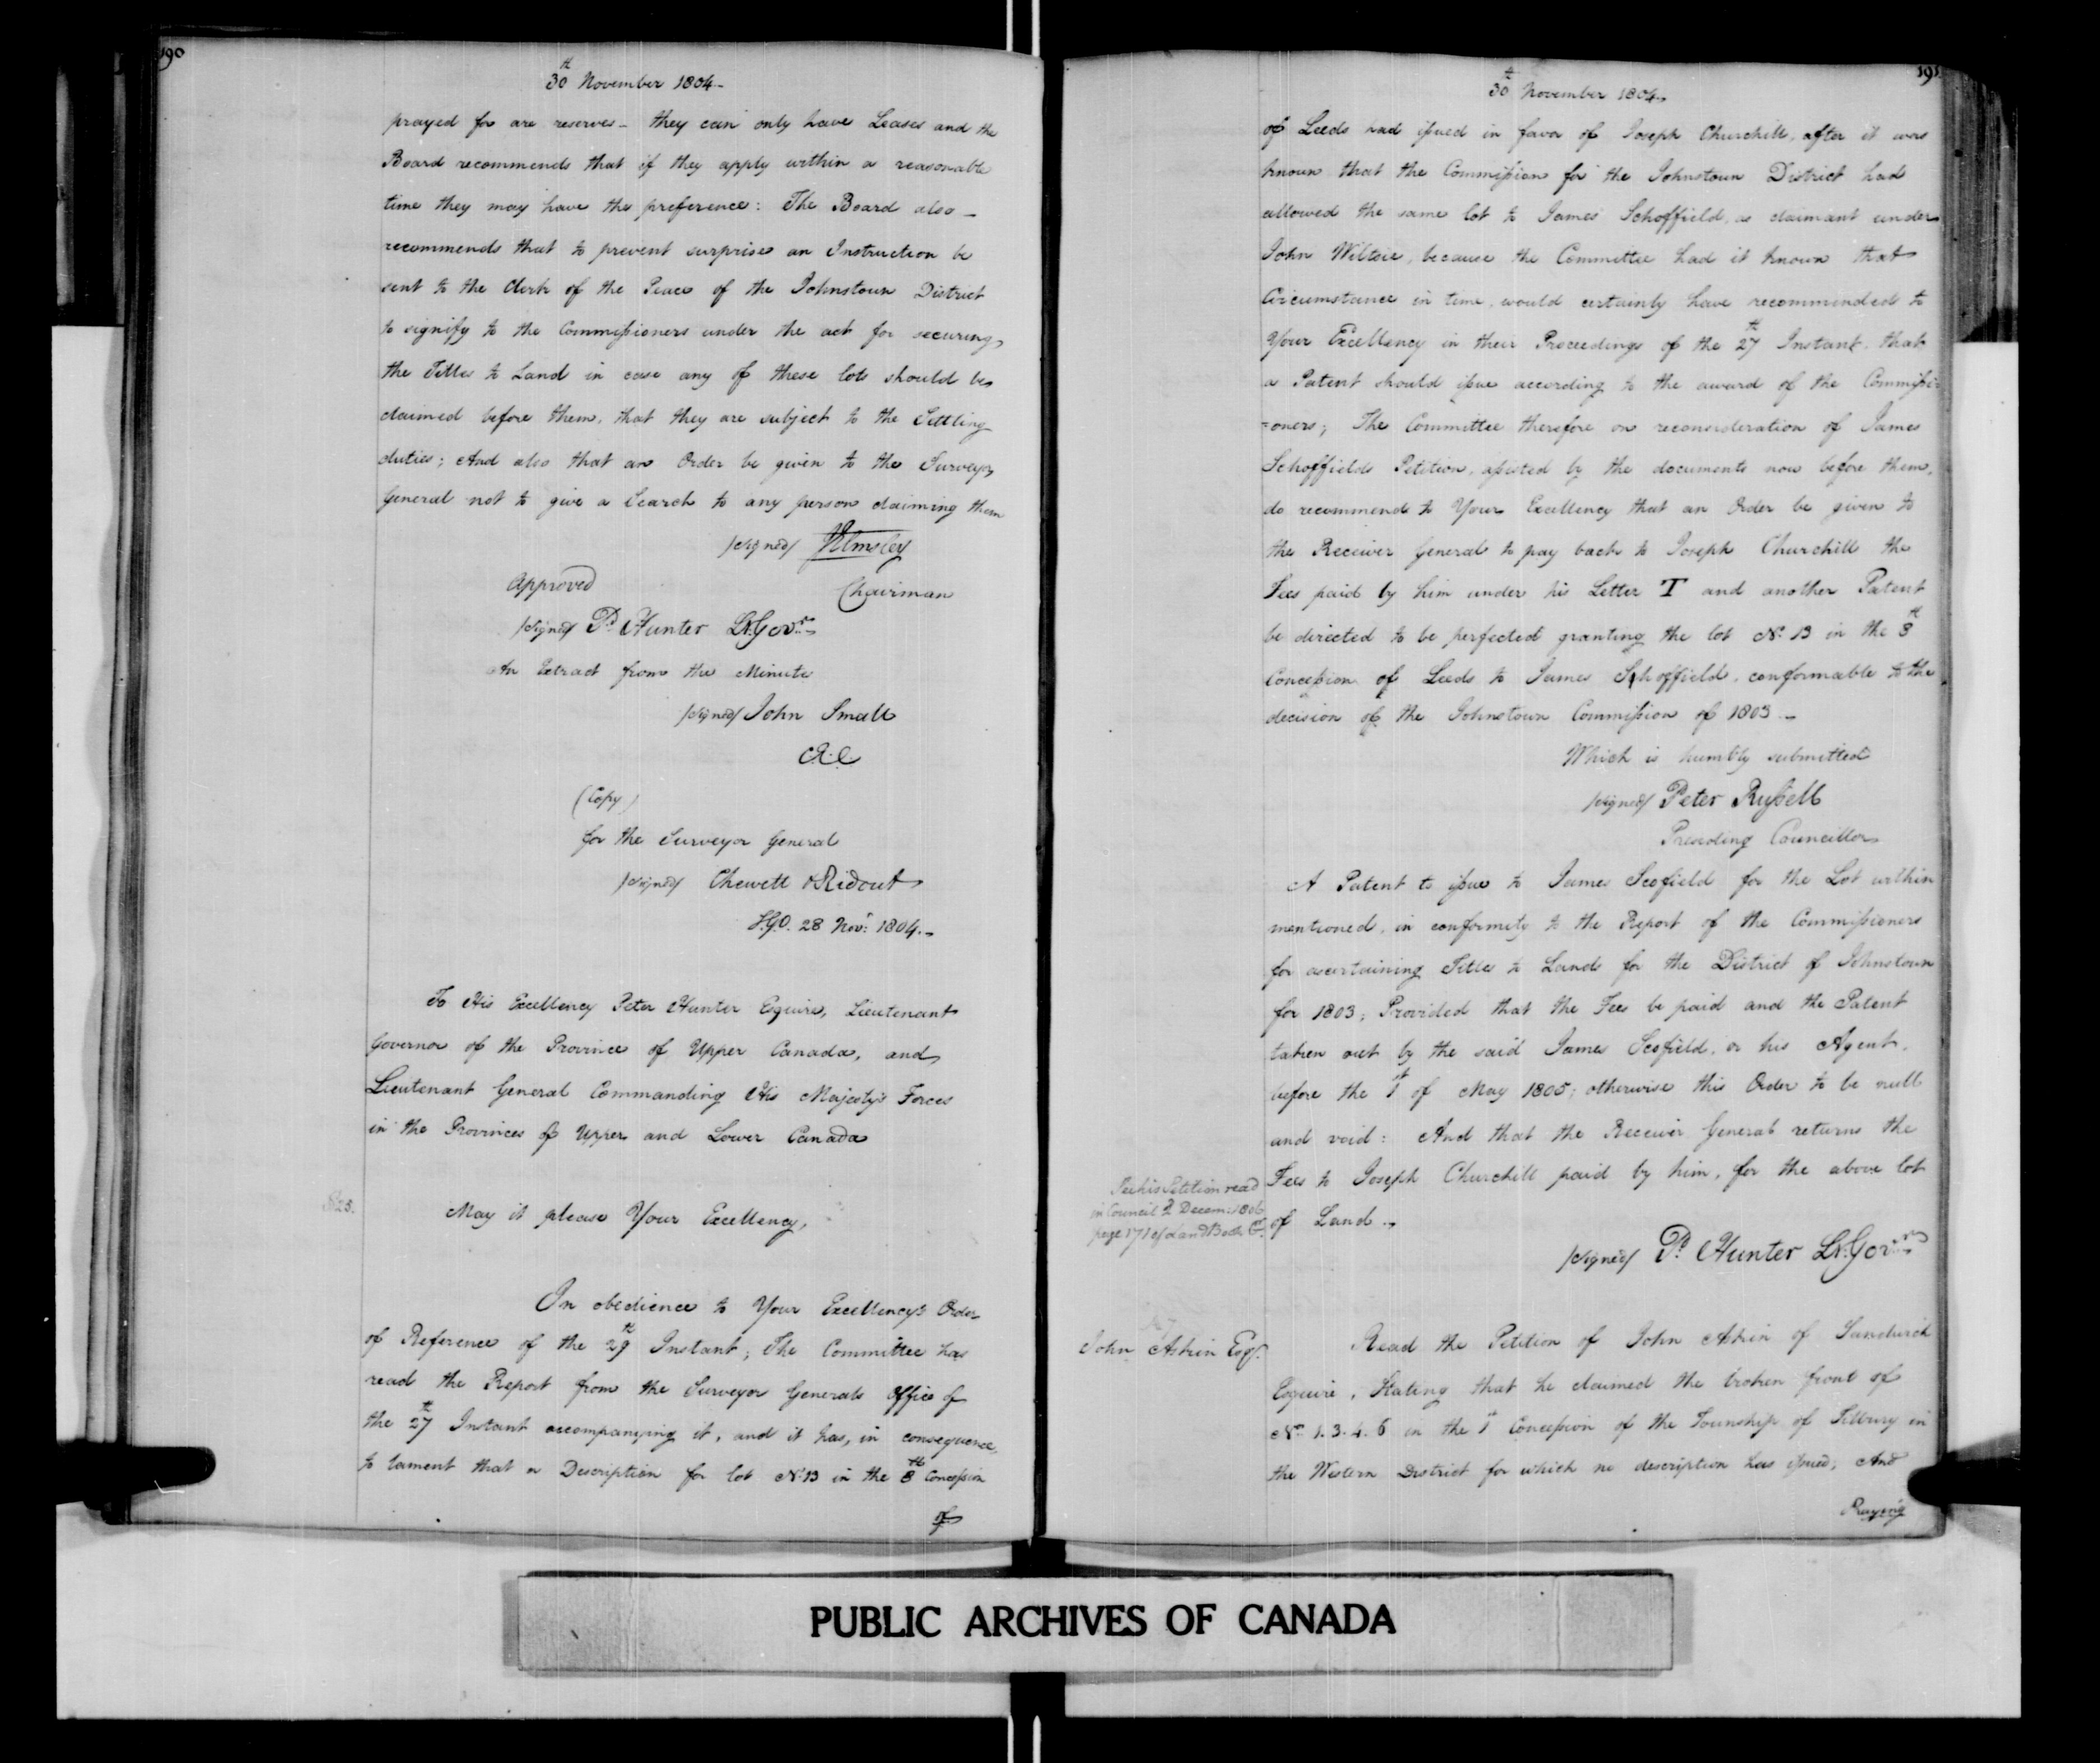 190
30th November 1804_
prayed for are reserves_ they can only have Leases and the
Board recommends that if they apply within a reasonable
time they may have the preference: The Board also_
recommends that to prevent surprise an Instruction be
sent to the Clerk of the Peace of the Johnstown District
to signify to the Commissioners under the act for securing
the Titles to Land in case any of these lots should be
claimed before them, that they are subject to the Settling
duties; And also that an Order be given to the Surveyor
General not to give a Search to any person claiming them
/signed/ J Elmsley
Approved Chairman
/signed/ Pr. Hunter Lt. Govr.
An Extract from the Minute
/signed/ John Small
(Copy)
for the Surveyor General
/signed/ Chewett & Ridout
S.G.O. 28 Novr. 1804._
To His Excellency Peter Hunter Esquire, Lieutenant
Governor of the Province of Upper Canada, and
Lieutenant General Commanding His Majesty's Forces
in the Provinces of Upper and Lower Canada
May it please Your Excellency,
In obedience to Your Excellency's Order
of Reference of the 29th Instant; The Committee has
read the Report from the Surveyor Generals Office of
the 27th Instant accompanying it, and it has, in consequence
to lament that a Description for lot No. 13 in the 8th Concession
of
191
30th November 1804
of Leeds had issued in favor of Joseph Churchill, after it was
known that the Commission for the Johnstown District had
allowed the same lot to James Schoffield, as claimant under
John Wiltsie, because the Committee had it known that
Circumstance in time, would certainly have recommended to
Your Excellency in their Proceedings of the 27th Instant, that
a Patent should issue according to the award of the Commissi-
=oners; The Committee therefore on reconsideration of James
Schoffields Petition, assisted by the documents now before them,
do recommend to Your Excellency that an Order be given to
the Receiver General to pay back to Joseph Churchill the
Fees paid by him under his Letter T and another Patent
be directed to be perfected granting the lot No. 13 in the 8th
Concession of Leeds to James Schoffield, conformable to the
decision of the Johnstown Commission of 1803._
Which is humbly submitted
/signed/ Peter Russell
Presiding Councillor
A Patent to issue to James Scofield for the Lot within
mentioned, in conformity to the Report of the Commissioners
for ascertaining Titles to Lands for the District of Johnstown
for 1803; Provided that the Fees be paid and the Patent
taken out by the said James Scofield, or his Agent,
before the 1st of May 1805; otherwise this Order to be null
and void: And that the Receiver General returns the
Fees to Joseph Churchill paid by him, for the above lot
of Land.
See his Petition read
in Council 2 Decem: 1806
page 171 of Land Book G.
/signed/ Pr. Hunter Lt. Govr.
John Askin Esqr.
Read the Petition of John Askin of Sandwich
Esquire, Stating that he claimed the broken front of
No. 1. 3. 4. 6 in the 1st Concession of the Township of Tilbury in
the Western District for which no description has issued; And
Praying
PUBLIC ARCHIVES OF CANADA